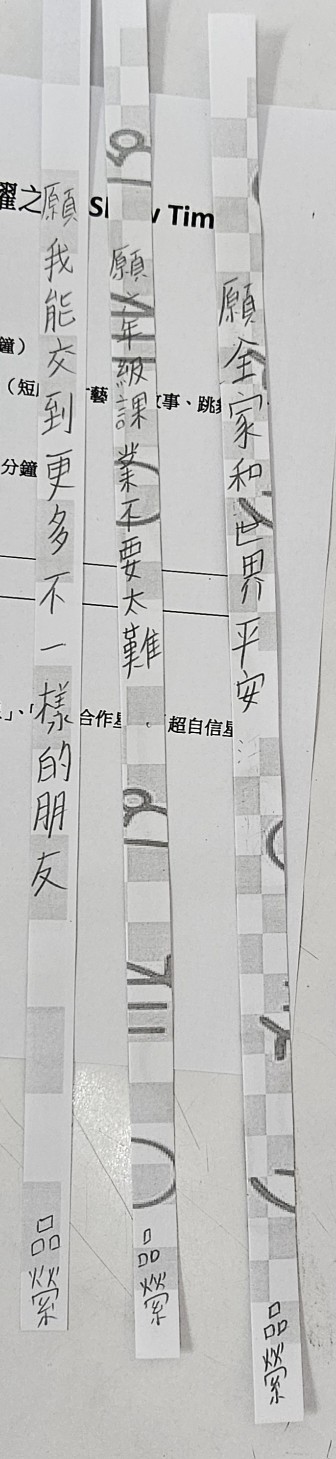 願我能交到更多不一樣的朋友
品縈
願六年級課業不要太難
品縈
願全家和世界平安
品縈
耀之
Tim
鐘）
（短
藝
故事、跳
分鐘
合作星
超自信星